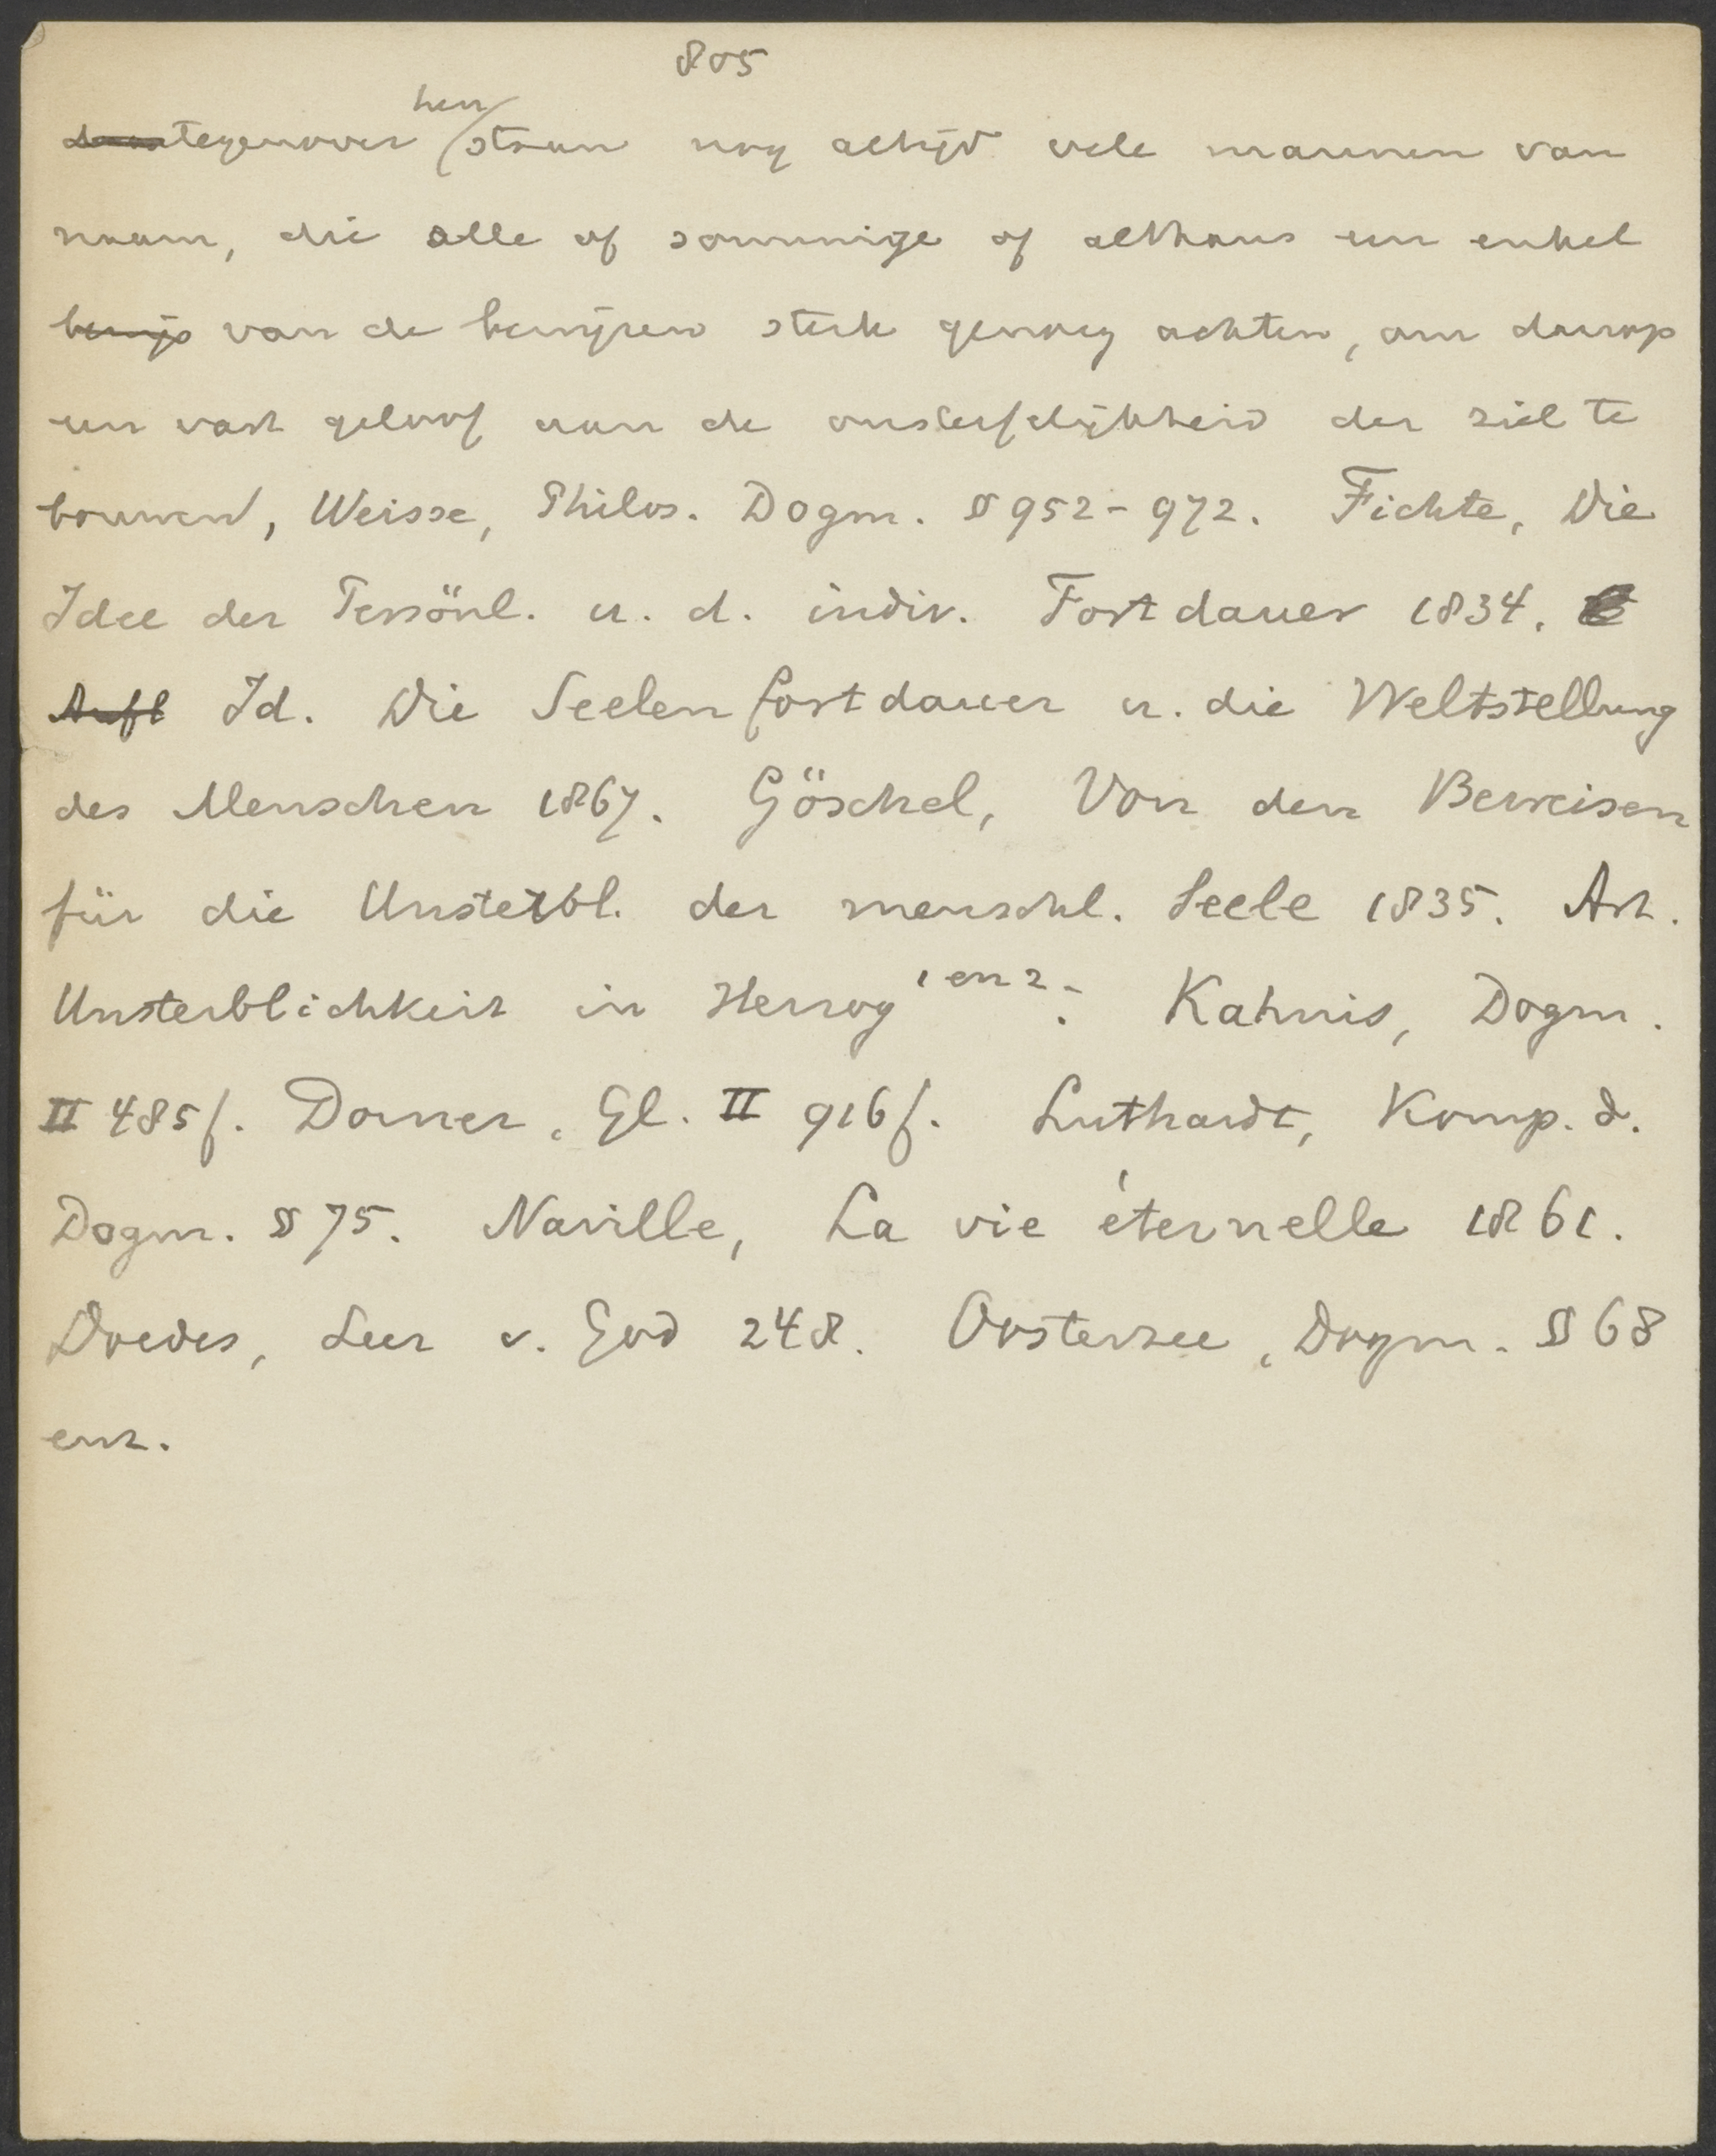 805
hen
daartegenover staan nog altijd vele mannen van
naam, die alle of sommige of althans een enkel
bewijs van de bewijzen sterk genoeg achten, om daarop
een vast geloof aan de onsterfelijkheid der ziel te
bouwen, Weisse, Philos. Dogm. § 952-972. Fichte, Die
Idee der Persönl. u. d. indiv. Fortdauer 1834.
Aufl Id. Die Seelenfortdauer u. die Weltstellung
des Menschen 1867. Göschel, Von den Beweisen
für die Unsterbl. der menschl. Seele 1835. Art.
Unsterblichkeit in Herzog 1 en 2. Kahnis, Dogm.
II 485f. Dorner, Gl. II 916f. Luthardt, Komp. d.
Dogm. § 75. Naville, La vie éternelle 1861.
Doedes, Leer v. God 248. Oosterzee, Dogm. § 68
enz.